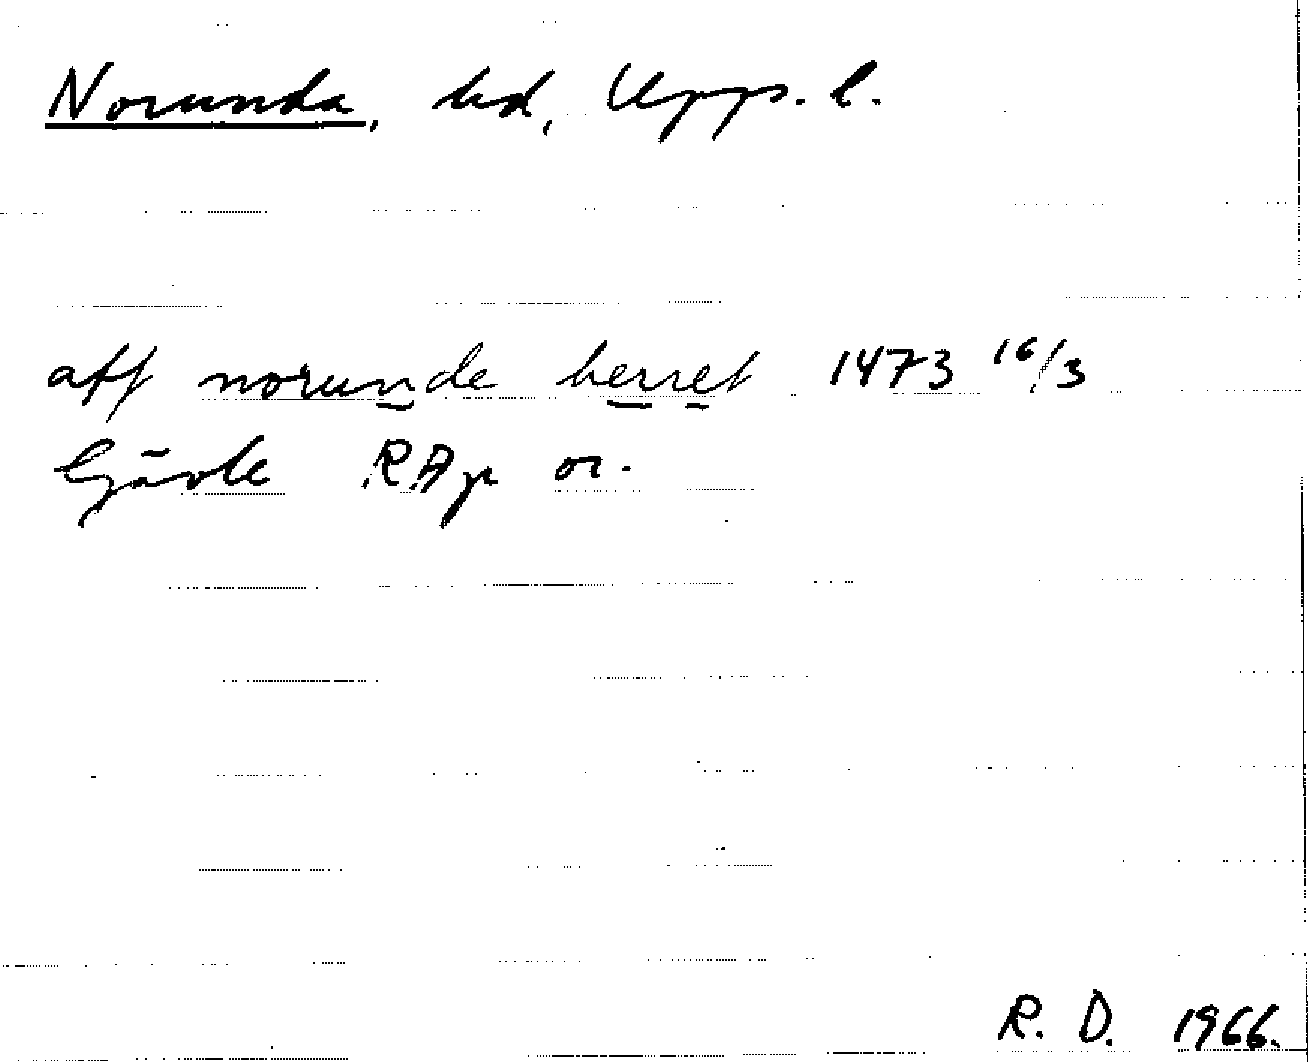 Norunda, hd, Upps. l.
aff norunde herret 1473 16/3
Gävle RAp or.
R. D. 1966.